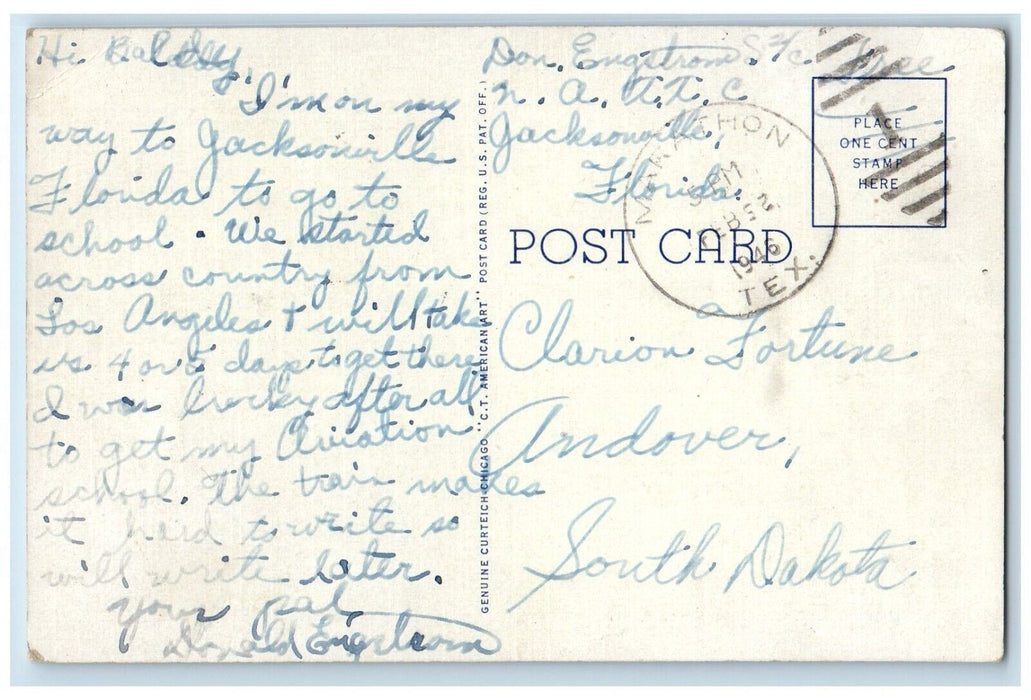 Hi Baldy,
I'm on my
way to Jacksonville
Florida to go to
school. We started
across country from
Los Angeles & will take
us 4 or 5 days to get there
I was lucky after all
to get my Aviation
school. The train makes
it hard to write so
will write later.
Your pal,
Donald Engstrom
GENUINE CURTEICH-CHICAGO "C.T. AMERICAN ART" POST CARD (REG. U.S. PAT. OFF.)
Don. Engstrom S 2/c Free
N. A. T. T. C
Jacksonville,
Florida.
PLACE
ONE CENT
STAMP
HERE
MARATHON
5 PM
FEB
1946
TEX.
POST CARD
Clarion Fortune
Andover,
South Dakota